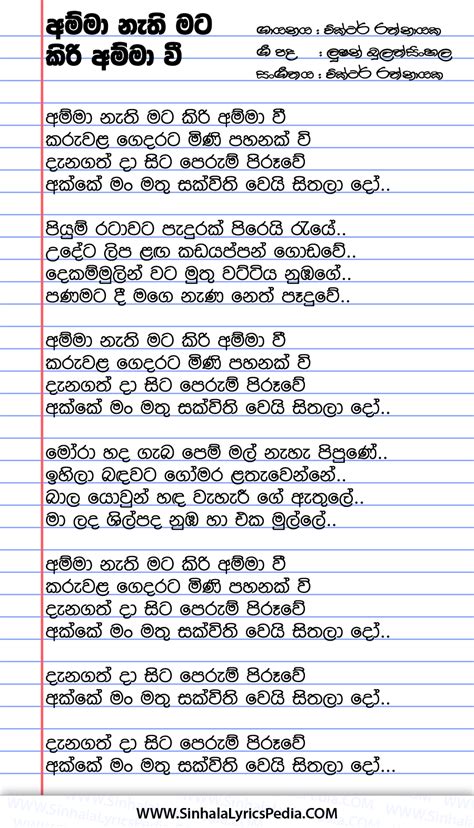 අම්මා නැති මට
කිරි අම්මා වී
ගායනය : වික්ටර් රත්නායක
ගී පද : ලූෂන් බුලත්සිංහල
සංගීතය : වික්ටර් රත්නායක
අම්මා නැති මට කිරි අම්මා වී
කරුවළ ගෙදරට මිණි පහනක් වි
දැනගත් දා සිට පෙරුම් පිරූවේ
අක්කේ මං මතු සක්විති වෙයි සිතලා දෝ..
පියුම් රටාවට පැදුරක් පිරෙයි රැයේ..
උදේට ලිප ළඟ කඩයප්පන් ගොඩවේ..
දෙකම්මුලින් වට මුතු වට්ටිය නුඹගේ..
පණමට දී මගෙ නැණ නෙත් පෑදුවේ..
අම්මා නැති මට කිරි අම්මා වී
කරුවළ ගෙදරට මිණි පහනක් වි
දැනගත් දා සිට පෙරුම් පිරූවේ
අක්කේ මං මතු සක්විති වෙයි සිතලා දෝ..
මෝරා හද ගැබ පෙම් මල් නැහැ පිපුණේ..
ඉහිලා බඳවට ගෝමර ළතැවෙන්නේ..
බාල යොවුන් හඳ වැහැරී ගේ ඇතුලේ..
මා ලද ශිල්පද නුඹ හා එක මුල්ලේ..
අම්මා නැති මට කිරි අම්මා වී
කරුවළ ගෙදරට මිණි පහනක් වි
දැනගත් දා සිට පෙරුම් පිරූවේ
අක්කේ මං මතු සක්විති වෙයි සිතලා දෝ..
දැනගත් දා සිට පෙරුම් පිරූවේ
අක්කේ මං මතු සක්විති වෙයි සිතලා දෝ..
දැනගත් දා සිට පෙරුම් පිරූවේ
අක්කේ මං මතු සක්විති වෙයි සිතලා දෝ...
WWW.SinhalaLyricsPedia.COM